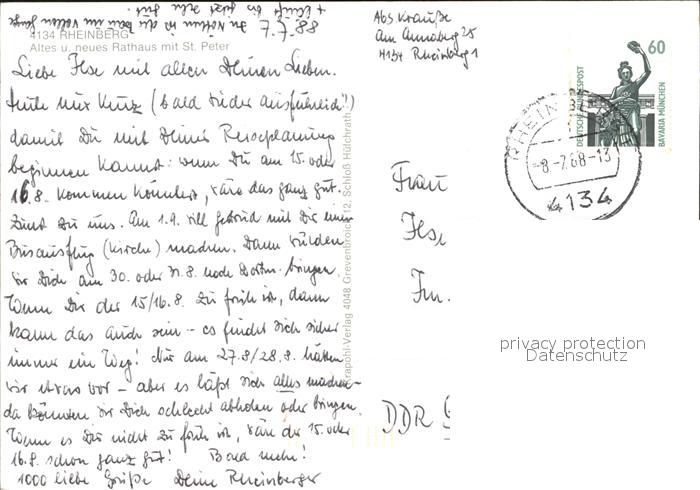 7.7.88 In Nöttum ist der Baum im vollen Gange
+ läuft bis jetzt sehr gut!
4134 RHEINBERG
Altes u. neues Rathaus mit St. Peter
Liebe Ilse mit allen Deinen Lieben.
Heute nur kurz (bald wieder ausführlich!)
damit Du mit Deiner Reiseplanung
beginnen kannst: wenn Du am 15. oder
16.8. kommen könntest, wäre das ganz gut.
zunst zu uns. Am 1.9. will Gertrud mit Dir einen
Busausflug (Kirche) machen. Dann würden
wir Dich am 30. oder 31.8. nach Dortm. bringen.
Wenn Dir der 15/16.8. zu früh ist, dann
kann das auch sein - es findet sich sicher
immer ein Weg! Nur am 27.8/28.8. hätten
wir etwas vor - aber es läßt sich alles machen -
da könnten wir Dich schlecht abholen oder bringen.
Wenn es Dir nicht zu früh ist, wäre der 15. oder
16.8. schon ganz gut! Bald mehr!
1000 liebe Grüße Deine Rheinberger
Krapohl-Verlag 4048 Grevenbroich 12, Schloß Hülchrath
Abs Krauße
Am Annaberg 25
4134 Rheinberg 1
60
DEUTSCHE BUNDESPOST
BAVARIA MÜNCHEN
RHEIN
-8.-7.88-13
4134
Frau
Ilse
Im.
DDR
privacy protection
Datenschutz